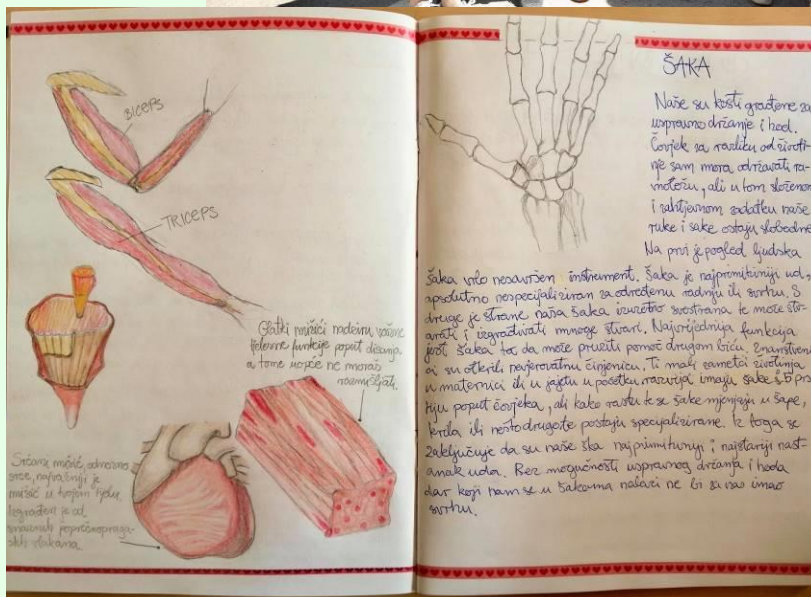 BICEPS
TRICEPS
Glatki mišići nadziru važne
tjelesne funkcije poput disanja
a tome uopće ne moraš
razmišljati.
Srčani mišić, odnosno
srce, najvažniji je
mišić u tvojem tijelu.
Izgrađen je od
poprečnopruga-
stih vlakana.
ŠAKA
Naše su kosti građene za
uspravno držanje i hod.
Čovjek za razliku od životi-
nje sam mora održavati ra-
vnotežu, ali u tom složenom
i zahtjevnom zadatku naše
ruke i šake ostaju slobodne.
Na prvi je pogled ljudska
šaka vrlo nesavršen instrument. Šaka je najprimitivniji ud,
apsolutno nespecijaliziran za određenu radnju ili svrhu. S
druge je strane naša šaka izuzetno svestrana te može stv-
arati i izgrađivati mnoge stvari. Najvrjednija funkcija
jest šaka ta da može pružiti pomoć drugom biću. Znanstveni
ci su otkrili nevjerovatnu činjenicu. Ti mali zameci životinja
u maternici ili u jajetu u početku razvoja imaju šake s 5 prs
tiju poput čovjeka, ali kako rastu te se šake mjenjaju u šape,
krila ili nešto drugo te postaju specijalizirane. Iz toga se
zaključuje da su naše šake najprimitivniji i najstariji nast-
anak uda. Bez mogućnosti uspravnog držanja i hoda
dar koji nam se u šakama nalazi ne bi za nas imao
svrhu.